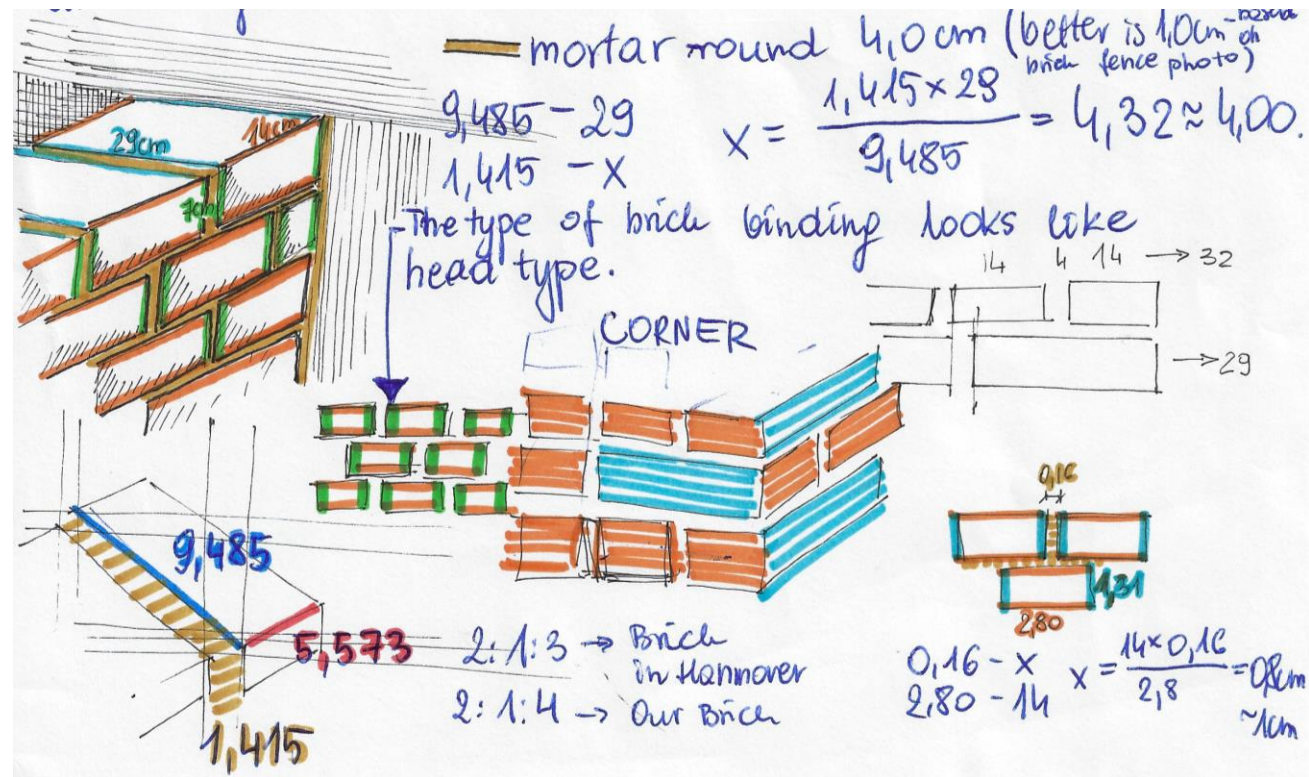 mortar round 4,0 cm (better is 1,0cm - based on
brick fence photo)
9,485 - 29
1,415 - x
x = 1,415 x 29 / 9,485 = 4,32 ≈ 4,00.
29cm
14cm
7cm
- The type of brick binding looks like
head type.
14 4 14 → 32
→ 29
CORNER
9,485
5,573
1,415
2:1:3 → Brick
in Hannover
2:1:4 → Our Brick
0,16
1,31
2,80
0,16 - x
2,80 - 14
x = 14 x 0,16 / 2,8 = 0,8cm
~1cm